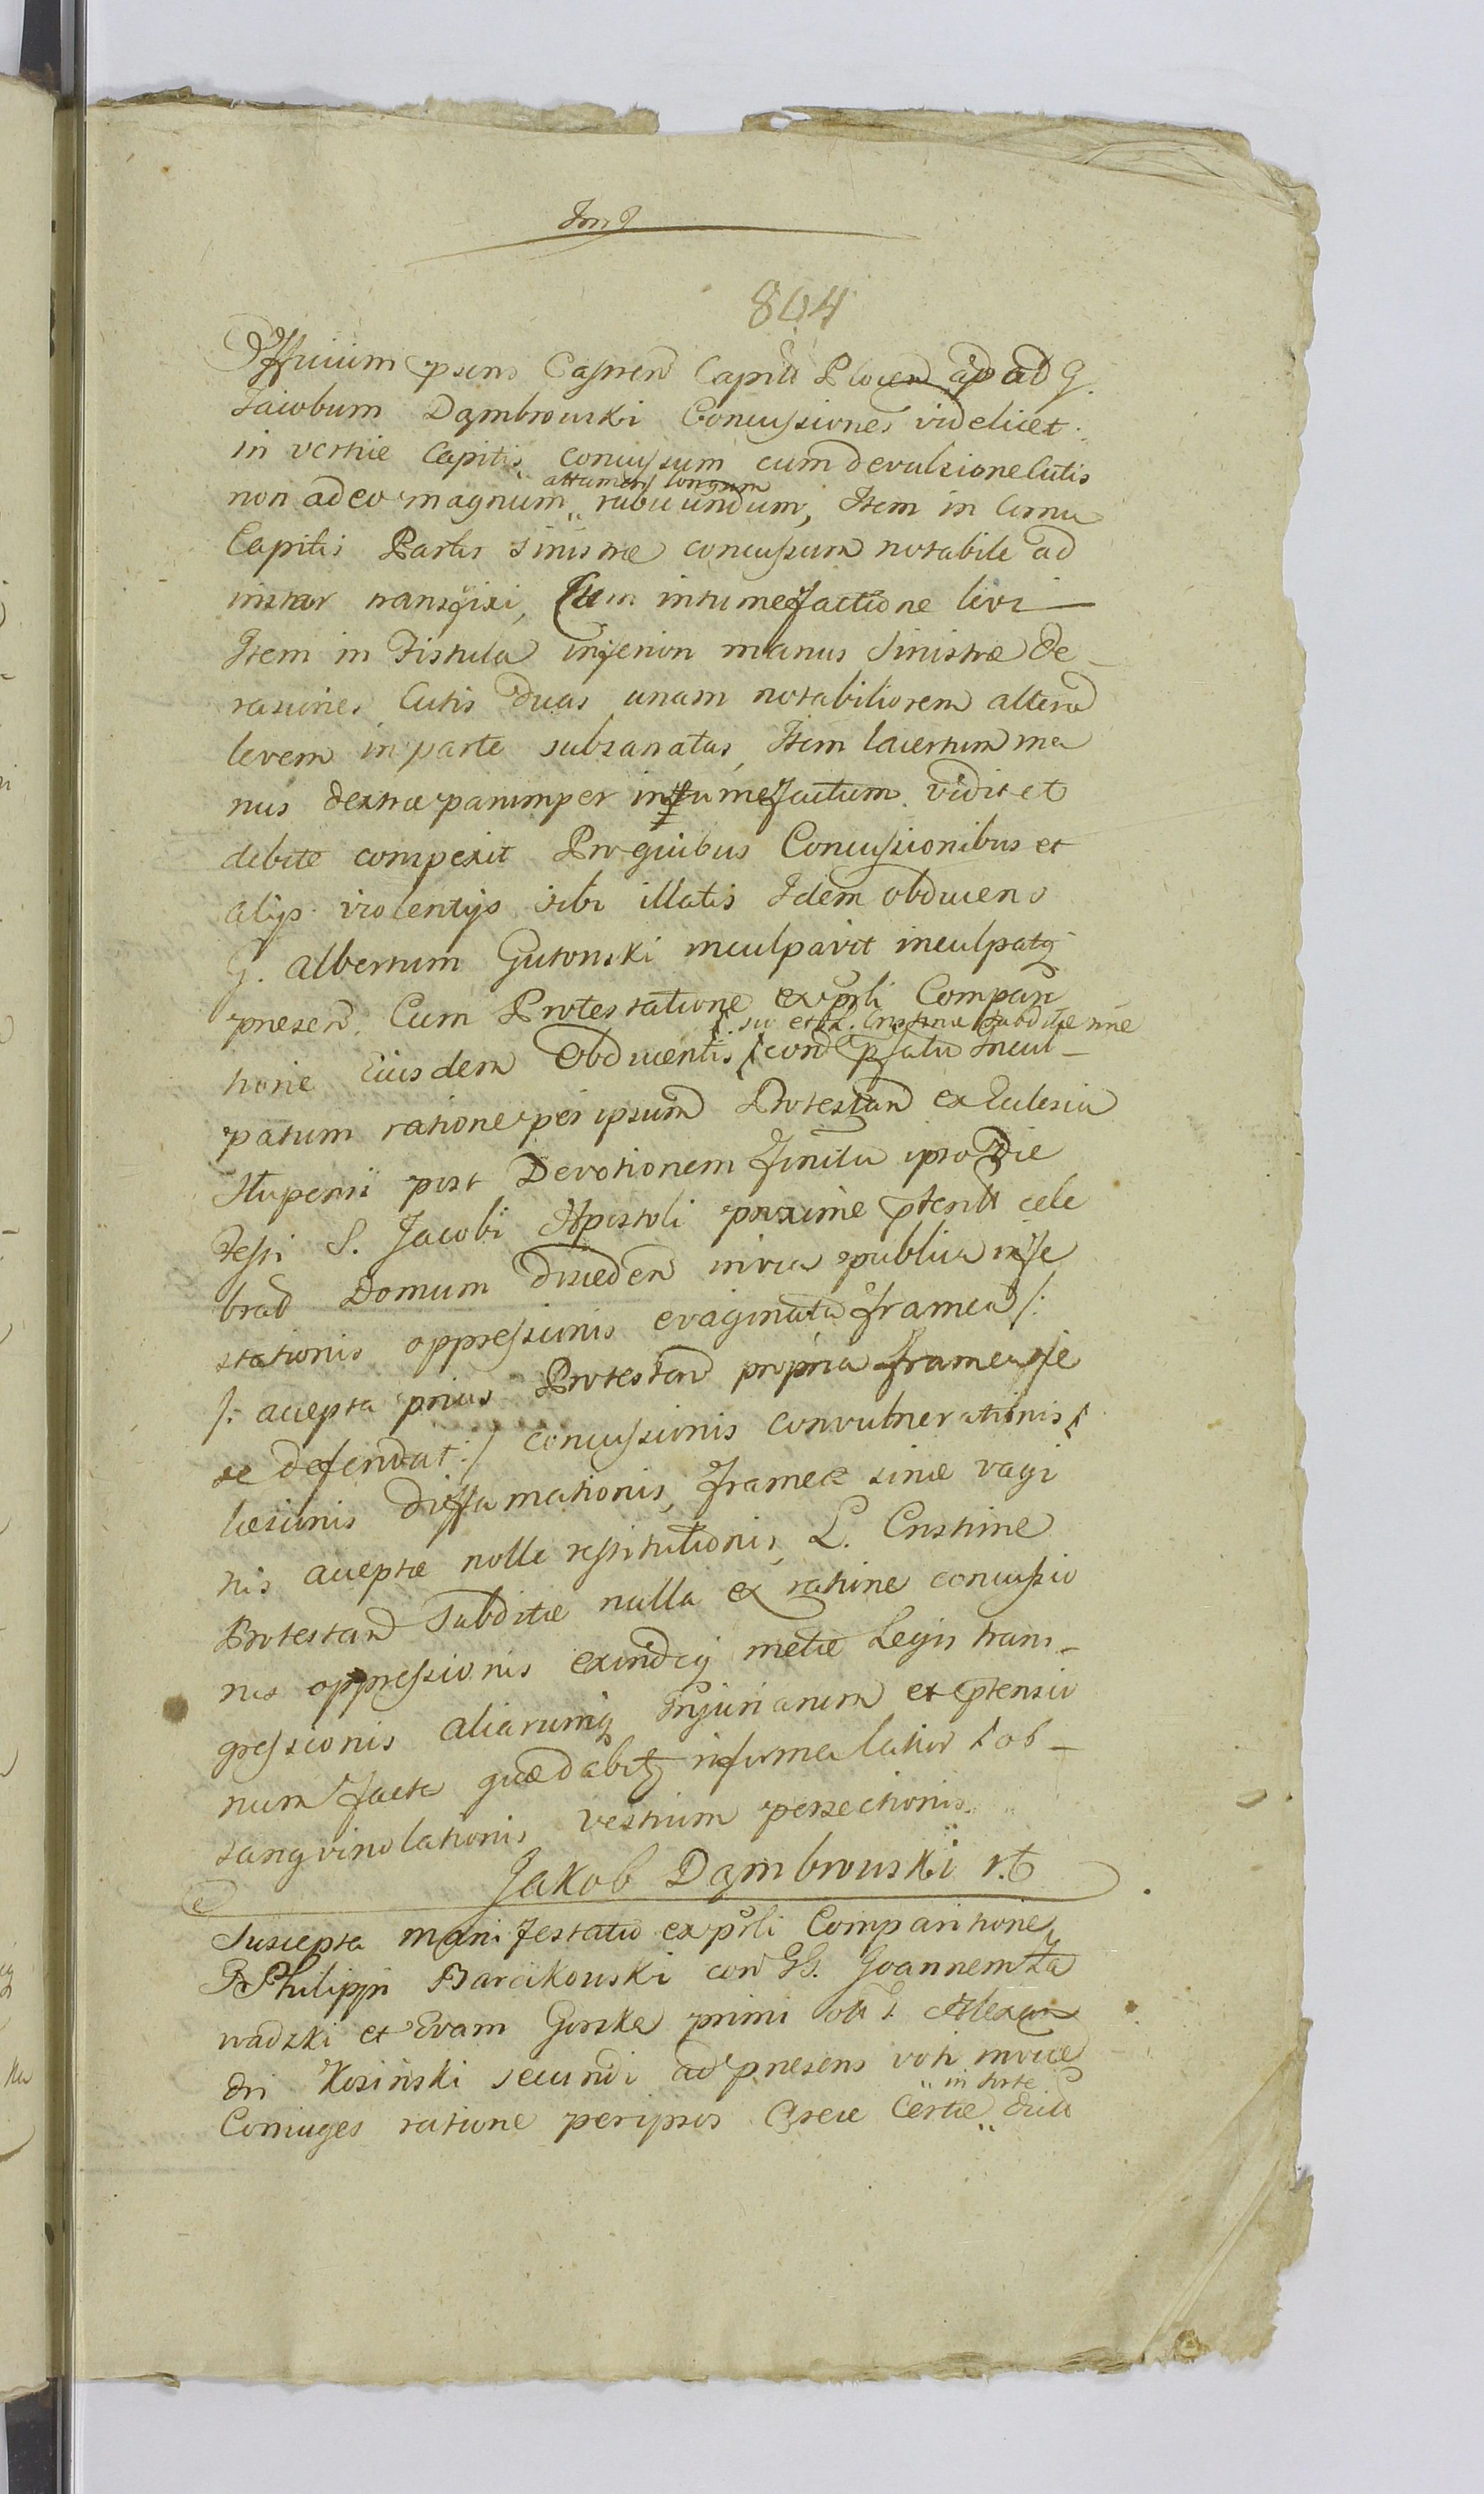 804
Officium psens Castren Capitt Plocen ap ad G.
Jacobum Dąmbrowski Concussiones videlicet
in vertice Capitis concussum cum devulsione Cutis
attamen longum
non adeo magnum rubicundum, Item in Cornu
Capitis Partis sinistræ concussum notabile ad
instar transfixi, Cum intumefactione livi
Item in Fistula inferiori manus sinistræ de-
rasiones Cutis duas unam notabiliorem altera
levem in parte subsanatas, Item lacertum ma
nus dextræ parumper intumefactum vidit et
debite comperit Pro quibus Concussionibus et
alijs violentijs sibi illatis Idem obducens
G. Albertum Gutowski inculpavit inculpatq
presen. Cum Protestatione ex psli Compari
suo et L. Cristinæ Subditæ nne
tione Eiusdem Obducentis con psatu Incul-
patum ratione per ipsum Protestan ex Eclesia
Stupensi post Devotionem finita ipso die
Festi S. Jacobi Apostoli proxime pterit cele
brad Domum disceden in via publica infe
stationis oppressionis evaginata framea /:
/: accepta prius Protestan propria framea ne
se defendat :/ concussionis convulnerationis
læsionis diffamationis, frameæ sine vagi
nis acceptæ nolle restitutionis, L. Cristine
Protestan Subditæ nulla ex ratione concussio
nis oppressionis exindeq metæ Legis trans-
gressionis aliarumq Injuriarum et ptensio
num facta quæ dabitq in forma latior
sangvinolationis vestium persectionis
Jakob Dąmbrowski
Suscepta manifestatio ex psli Comparitione
G Philippi Barcikowski con GG. Joannem Za
wadzki et Evam Gorska primi olim Alexan
dri Kosinski secundi ad presens voti invice
in sorte
Coniuges ratione per ipsos Areæ Certæ